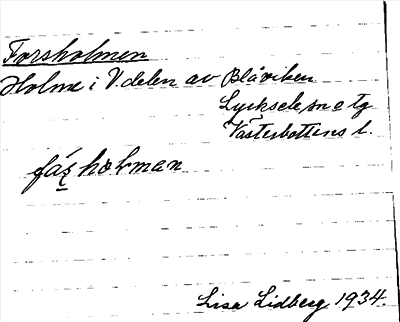 Forsholmen
Holme i V. delen av Blåviken
Lycksele sn o tg
Västerbottens l.
holmen
Lisa Lidberg 1934.